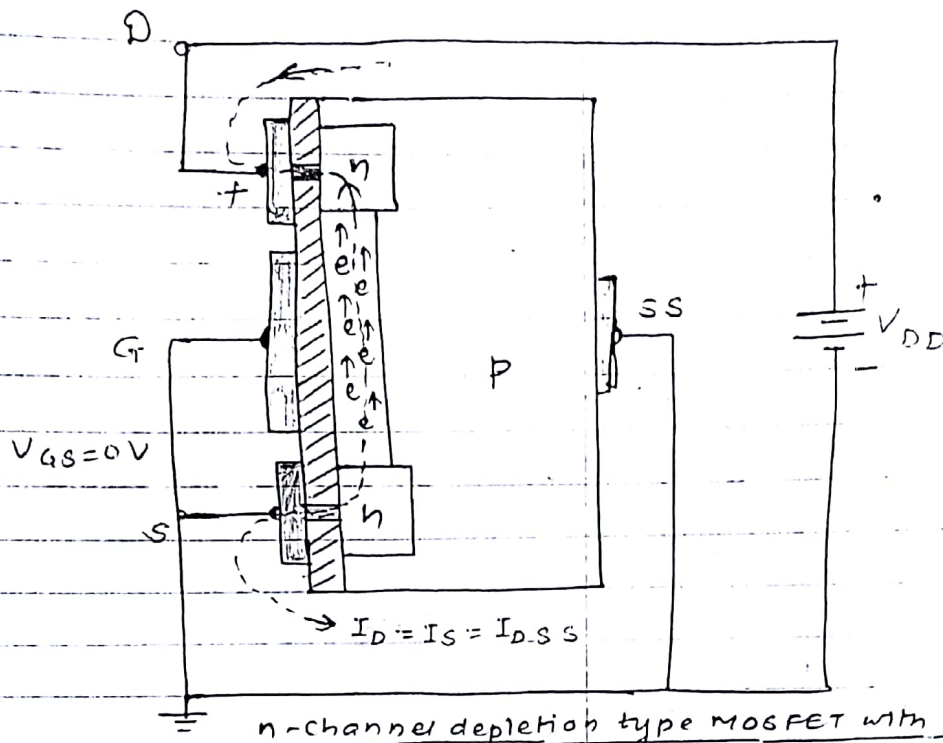 D
+
n
e e
e e
e e
e
G
p
SS
+
V DD
-
V GS = 0 V
S
n
I D = I S = I D-SS
n-channel depletion type MOSFET with